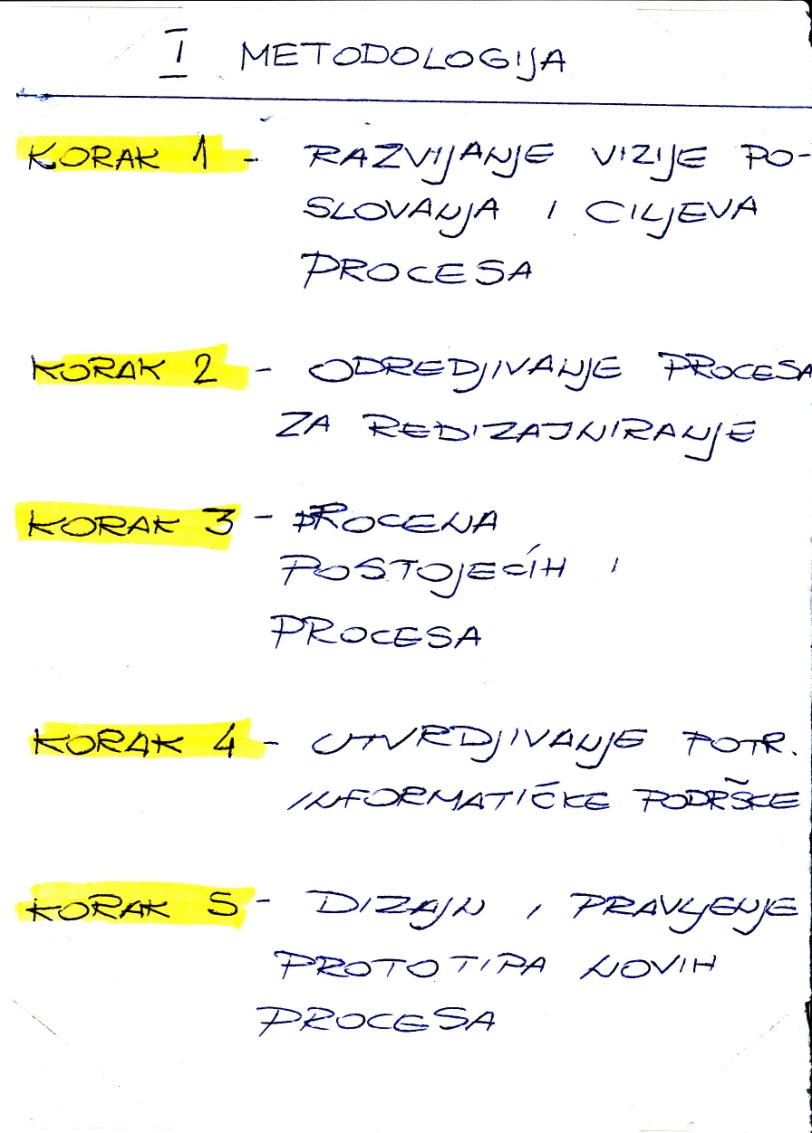 I METODOLOGIJA
KORAK 1 - RAZVIJANJE VIZIJE PO-
SLOVANJA I CILJEVA
PROCESA
KORAK 2 - ODREDJIVANJE PROCESA
ZA REDIZAJNIRANJE
KORAK 3 - PROCENA
POSTOJEĆIH I
PROCESA
KORAK 4 - UTVRDJIVANJE POTR.
INFORMATIČKE PODRŠKE
KORAK 5 - DIZAJN I PRAVLJENJE
PROTOTIPA NOVIH
PROCESA